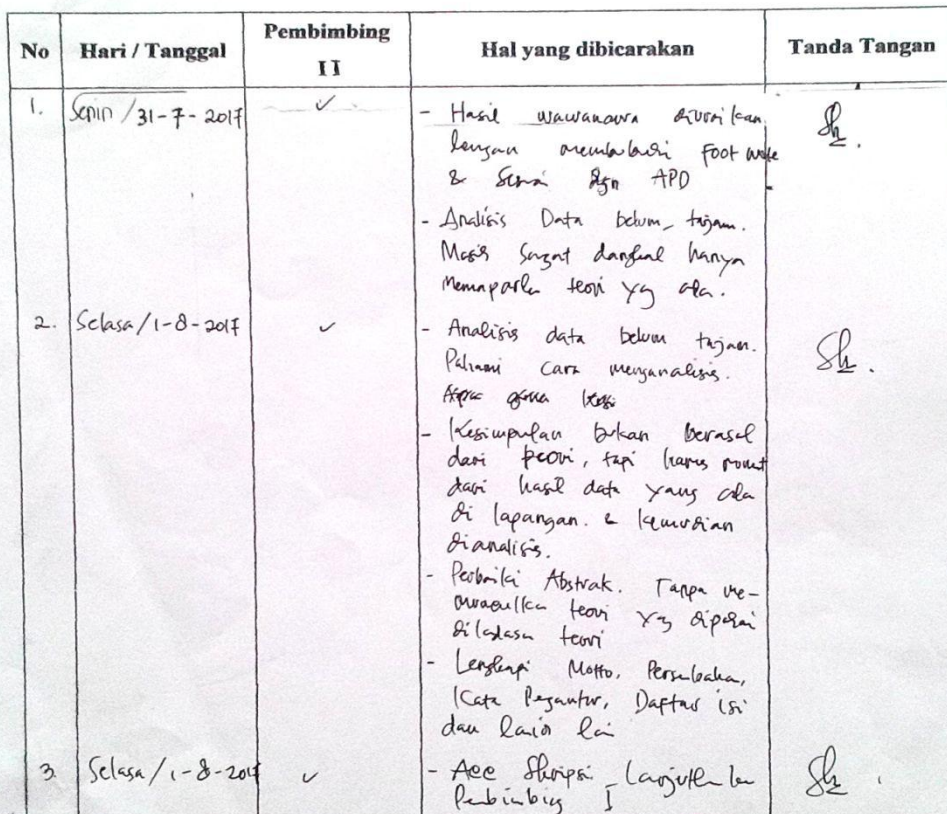 No Hari / Tanggal Pembimbing II Hal yang dibicarakan Tanda Tangan
1. Senin / 31-7-2017 ✓ - Hasil wawancara diuraikan
dengan membubuhi Foot note
& dgn APD
- Analisis Data belum tajam.
Masih Sangat dangkal hanya
Memaparka teori yg ada.
2. Selasa / 1-8-2017 ✓ - Analisis data belum tajam.
Pahami cara menganalisis.
- Kesimpulan bukan berasal
dari teori, tapi harus
dari hasil data yang ada
di lapangan. & kemudian
dianalisis.
- Perbaiki Abstrak. Tanpa me-
teori yg dipakai
dilandasan teori
- Lengkapi Motto, Persembahan,
Kata Pegantur, Daftar isi
dan lain lain
3. Selasa / 1-8-2017 ✓ - Acc Skripsi Lanjutkan ke
Pembimbing I